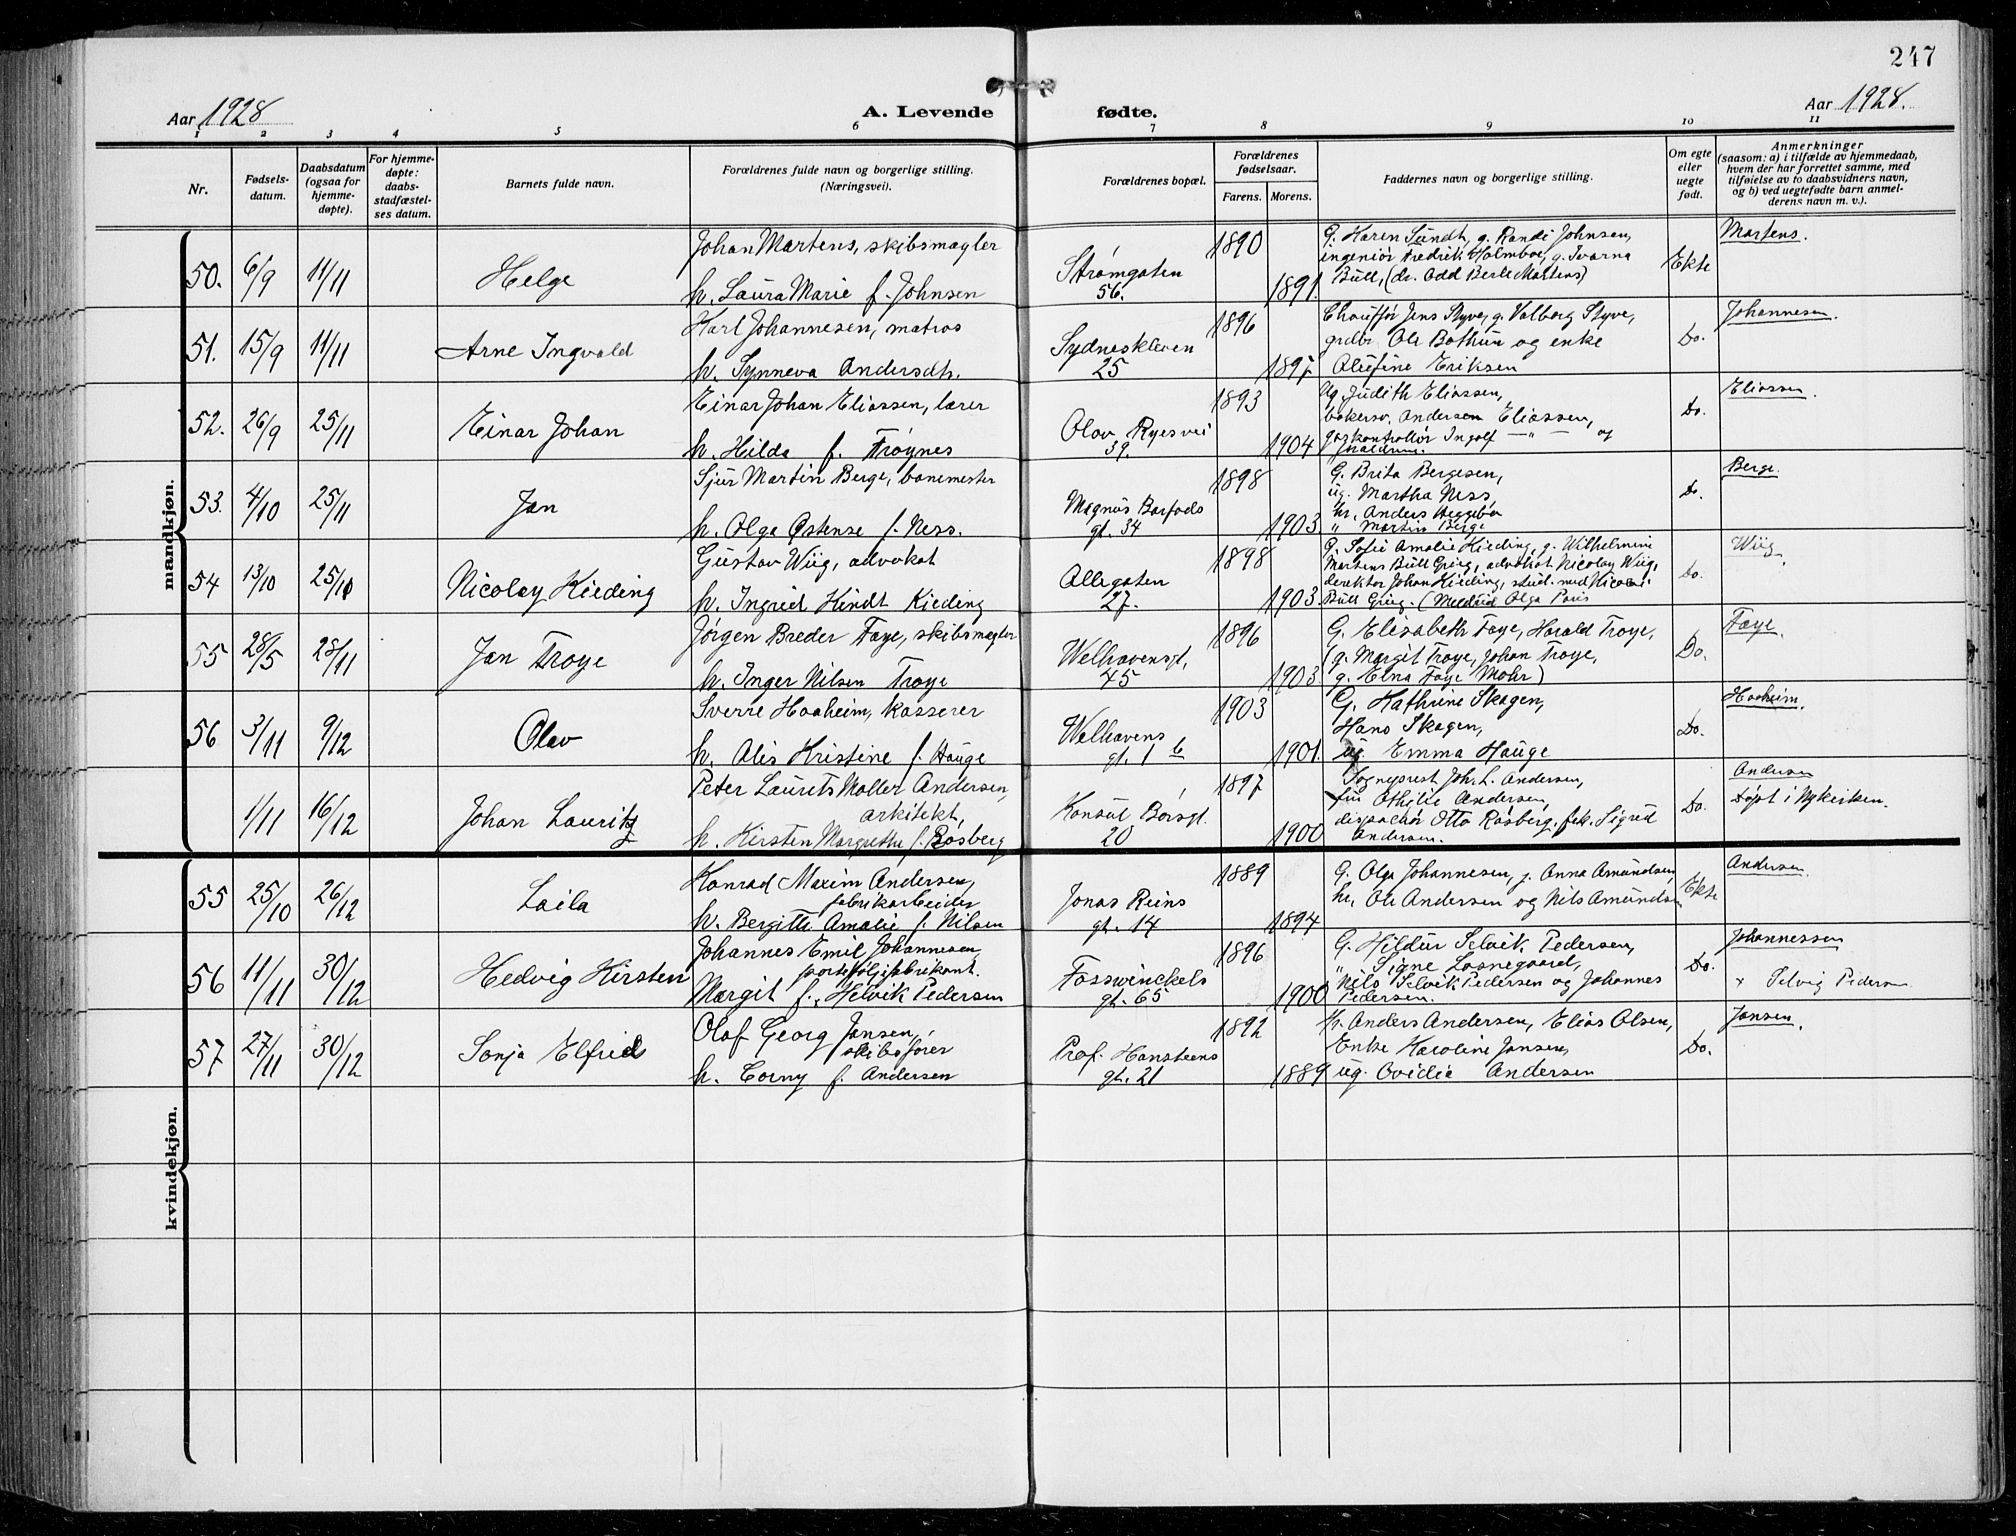 247
Aar 1928
A. Levende fødte.
Aar 1928.
1 2 3 4 5 6 7 8 9 10 11
Nr.
Fødsels-
datum.
Daabsdatum
(ogsaa for
hjemme-
døpte).
For hjemme-
døpte:
daabs-
stadfæstel-
ses datum.
Barnets fulde navn.
Forældrenes fulde navn og borgerlige stilling.
(Næringsvei).
Forældrenes bopæl.
Forældrenes
fødselsaar.
Farens. Morens.
Faddernes navn og borgerlige stilling.
Om egte
eller
uegte
født.
Anmerkninger
(saasom: a) i tilfælde av hjemmedaab,
hvem der har forrettet samme, med
tilføielse av to daabsvidners navn,
og b) ved uegtefødte barn anmel-
derens navn m. v.).
mandkjøn.
50. 6/9 11/11 Helge
Johan Martens, skibsmægler
h. Laura Marie f. Johnsen
Strømgaten
56.
1890
1891.
G. Karen Sundt, g. Randi Johnsen,
ingeniør Fredrik Holmboe, g. Ivarna
Bull, (dr. Odd Berle Martens)
Ekte
Martens.
51. 15/9 11/11 Arne Ingvald
Karl Johannesen, matros
h. Synneva Andersdt.
Sydneskleven
25
1896
1897.
Chauffør Jens Styve, g. Valborg Styve,
grdbr. Ole Bothun og enke
Olufine Eriksen
Do.
Johannesen.
52. 26/9 25/11 Einar Johan
Einar Johan Eliassen, lærer
h. Hilda f. Frøynes
Olav Ryesvei
39.
1893
1904
Ug. Judith Eliassen,
bakersv. Andersen Eliassen,
gaskontrollør Ingolf —"— og
Do.
Eliassen.
53. 4/10 25/11 Jan
Sjur Martin Berge, banemester
h. Olga Østense f. Ness.
Magnus Barfods
gt. 34
1898
1903.
G. Brita Bergesen,
ug. Martha Ness,
hr. Anders Heggebø
" Martin Berge
Do.
Berge.
54 13/10 25/10 Nicolay Kieding
Gustav Wiig, advokat
h. Ingrid Hindt Kieding
Allegaten
27.
1898
1903.
G. Sofie Amalie Kieding, g. Wilhelmine
Martens Bull Grieg, advokat Nicolay Wiig,
direktør Johan Kieding, stud. med Nicolai
Bull Grieg. (Meldrid Olga Paris
Do.
Wiig.
55 28/5 28/11 Jan Troye
Jørgen Breder Faye, skibsmægler
h. Inger Nilsen Troye
Welhavensgt.
45
1896
1903.
G. Elisabeth Faye, Harald Troye,
(g. Margit Troye, Johan Troye,
g. Elna Faye Mohr)
Do.
Faye.
56 3/11 9/12 Olav
Sverre Haaheim, kasserer
h. Alis Kristine f. Hauge
Welhavens
gt. 1 b
1903
1901.
G. Kathrine Skagen,
Hans Skagen,
ug. Emma Hauge
Do.
Haaheim.
1/11 16/12 Johan Lauritz
Peter Laurits Møller Andersen,
arkitekt,
h. Kirsten Margrethe f. Rosberg
Konsul Børsgt.
20
1897
1900
Sogneprest Joh. L. Andersen,
fru Othilie Andersen,
dispachør Otto Rosberg, frk. Sigrid
Andersen.
Do.
Andersen
Døpt i Nykirken.
kvindekjøn.
55 25/10 26/12 Laila
Konrad Maxim Andersen,
fabrikarbeider
h. Bergitte Amalie f. Nilsen
Jonas Reins
gt. 14
1889
1894
G. Olga Johannesen, g. Anna Amundsen
hr. Ole Andersen og Nils Amundsen
Ekte
Andersen.
56 11/11 30/12 Hedvig Kirsten
Johannes Emil Johannesen,
porteføljefabrikant.
Margit f. Helvik Pedersen
Fosswinckels
gt. 65
1896
1900
G. Hildur Selvik Pedersen,
" Signe Losnegaard,
Nils Selvik Pedersen og Johannes
Pedersen.
Do.
Johannessen
x Selvig Pedersen
57 27/11 30/12 Sonja Elfried
Olaf Georg Jansen,
skibsfører
h. Corny f. Andersen
Prof. Hansteens
gt. 21
1892
1889
Hr. Anders Andersen, Elias Olsen,
Enke Karoline Jansen,
ug. Ovidia Andersen
Do.
Jansen.